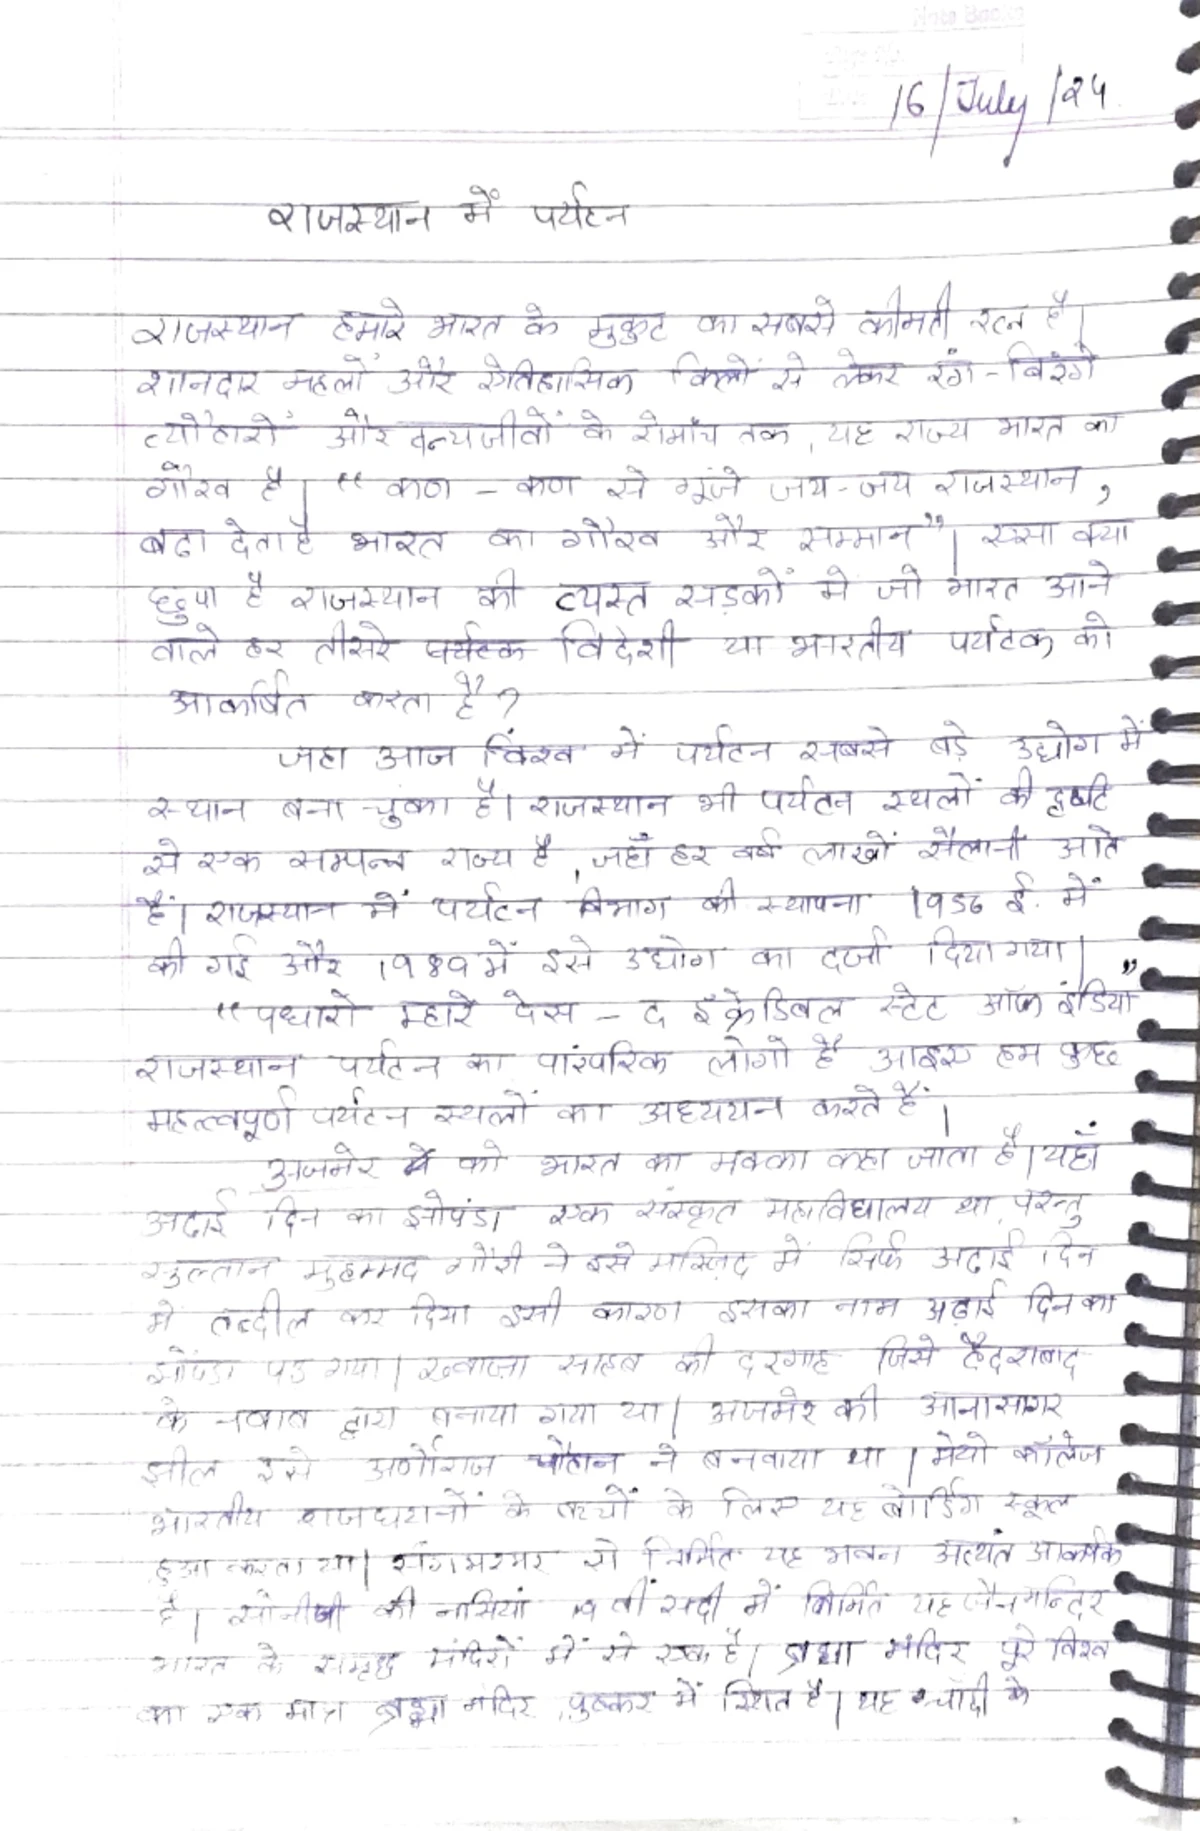 16/July/24
राजस्थान में पर्यटन
राजस्थान हमारे भारत के मुकुट का सबसे कीमती रत्न है।
शानदार महलों और ऐतिहासिक किलों से लेकर रंग-बिरंगे
त्यौहारों और वन्यजीवों के रोमांच तक, यह राज्य भारत का
गौरव है। "कण - कण से गूंजे जय-जय राजस्थान,
बढा देता है भारत का गौरव और सम्मान"। एसा क्या
छुपा है राजस्थान की व्यस्त सड़कों मे जो भारत आने
वाले हर तीसरे पर्यटक विदेशी या भारतीय पर्यटक को
आकर्षित करता है?
जहा आज विश्व में पर्यटन सबसे बड़े उद्योग में
स्थान बना चुका है। राजस्थान भी पर्यटन स्थलों की दृष्टि
से एक सम्पन्न राज्य है, जहाँ हर वर्ष लाखों सैलानी आते
हैं। राजस्थान में पर्यटन विभाग की स्थापना 1956 ई. में
की गई और 1989 में इसे उद्योग का दर्जा दिया गया।
"पधारो म्हारे देस - द इंक्रेडिबल स्टेट ऑफ इंडिया"
राजस्थान पर्यटन का पारंपरिक लोगो है आइए हम कुछ
महत्वपूर्ण पर्यटन स्थलों का अध्ययन करते हैं।
अजमेर को भारत का मक्का कहा जाता है। यहाँ
अढाई दिन का झोपंडा एक संस्कृत महाविद्यालय था, परन्तु
सुल्तान मुहम्मद गौरी ने इसे मस्ज़िद में सिर्फ अढाई दिन
मे तब्दील कर दिया इसी कारण इसका नाम अढ़ाई दिन का
झोंपडा पड गया। ख्वाज़ा साहब की दरगाह जिसे हैदराबाद
के नवाब द्वारा बनाया गया था। अजमेर की आनासागर
झील इसे अर्णोराज चौहान ने बनवाया था। मेयो कॉलेज
भारतीय राजघरानों के बच्चों के लिए यह बोर्डिंग स्कूल
हुआ करता था। संगमरमर से निर्मित यह भवन अत्यंत आकर्षक
है। सोनीजी की नासियां 19 वीं सदी में निर्मित यह जैन मन्दिर
भारत के समृद्ध मंदिरों में से एक है। ब्रह्मा मंदिर पूरे विश्व
का एक मात्र ब्रह्मा मंदिर, पुष्कर में स्थित है। यह चाँदी के